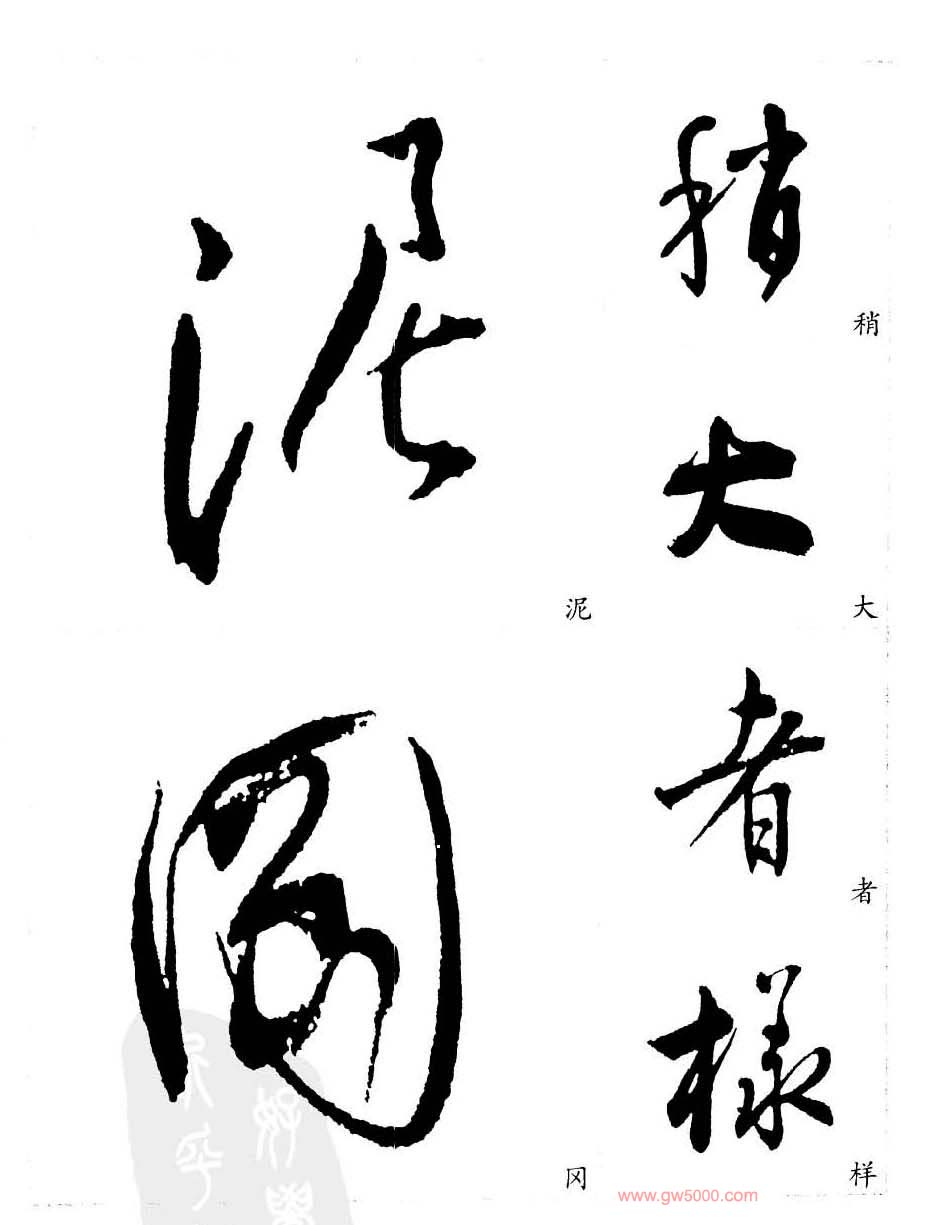 稍
稍
大
大
者
者
樣
样
泥
泥
冈
www.gw5000.com